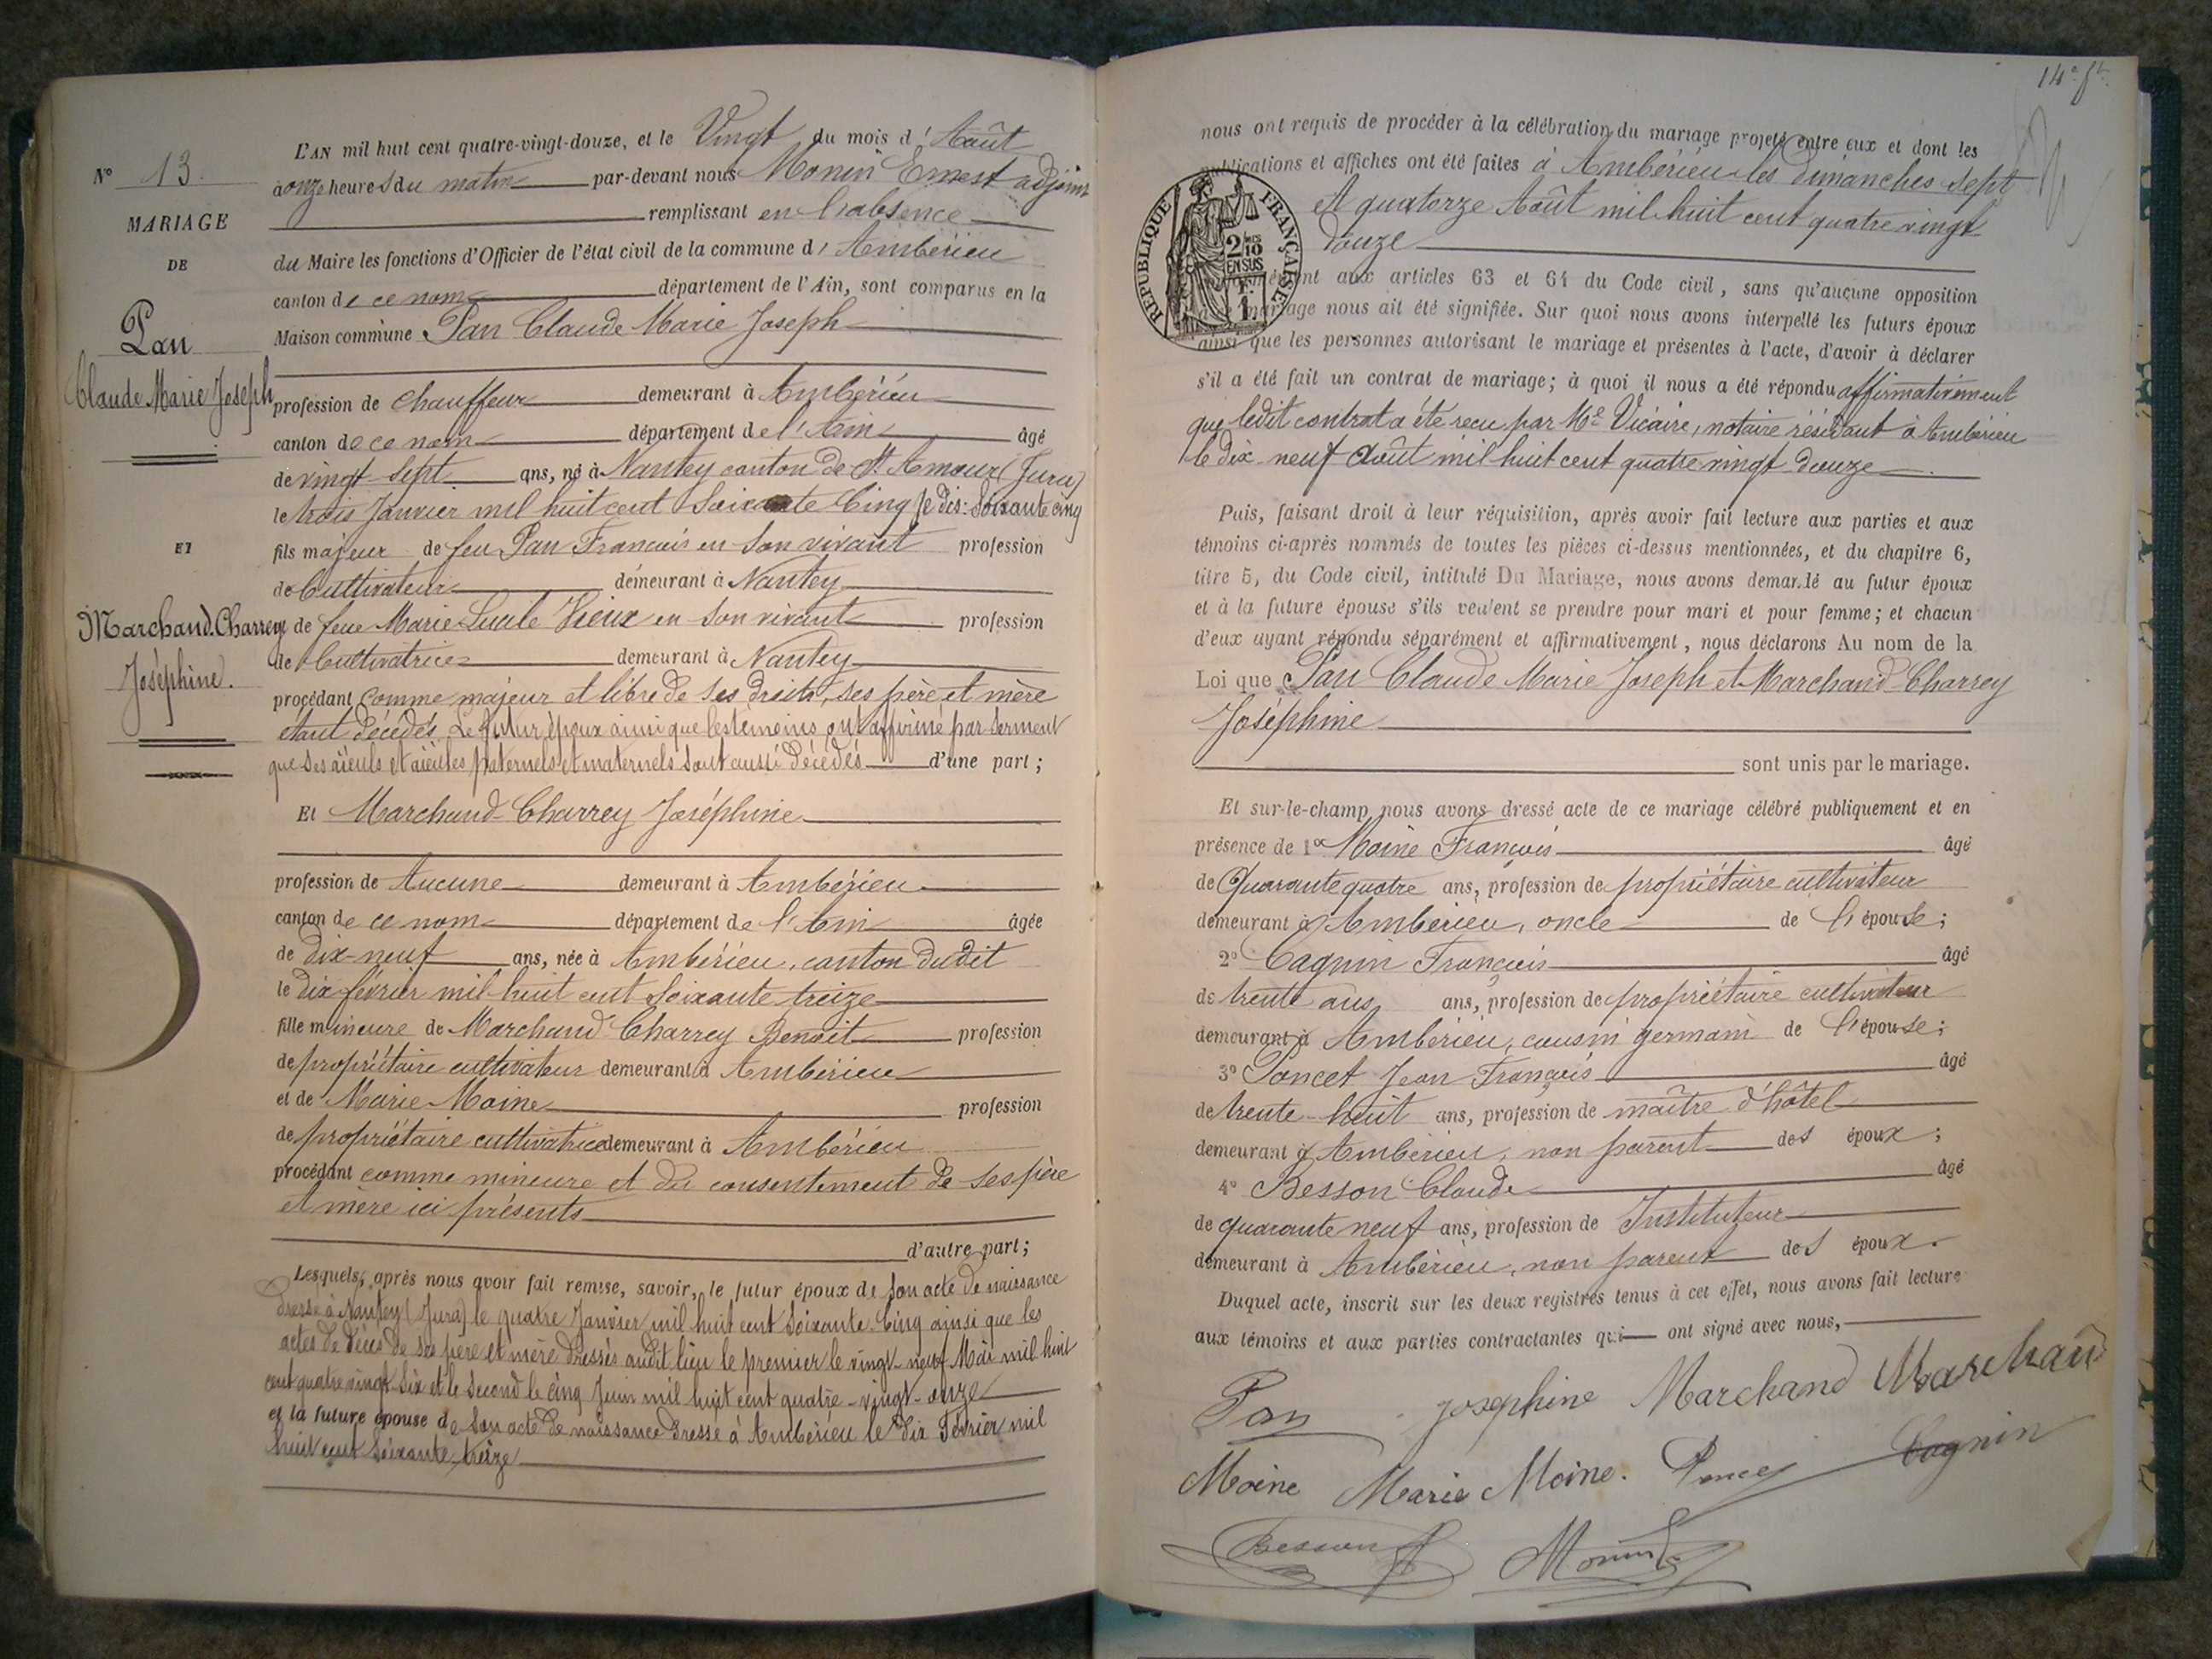 L'AN mil huit cent quatre-vingt-douze, et le Vingt du mois d'Août
à onze heures du matin par-devant nous Monin Ernest adjoint
remplissant en l'absence
du Maire les fonctions d'Officier de l'état civil de la commune d'Ambérieu
canton de ce nom département de l'Ain, sont comparus en la
Maison commune Pan Claude Marie Joseph
profession de chauffeur demeurant à Ambérieu
canton de ce nom département de l'Ain âgé
de vingt-sept ans, né à Nantey canton de St Amour (Jura)
le trois Janvier mil huit cent soixante cinq je dis: soixante cinq
fils majeur de feu Pan François en son vivant profession
de Cultivateur demeurant à Nantey
de feue Marie Lucile Vieux en son vivant profession
de Cultivatrice demeurant à Nantey
procédant comme majeur et libre de ses droits, ses père et mère
étant décédés. Le futur époux ainsi que les témoins ont affirmé par serment
que ses aïeuls et aïeules paternels et maternels sont aussi décédés d'une part;
Et Marchand-Charrey Joséphine
profession de Aucune demeurant à Ambérieu
canton de ce nom département de l'Ain âgée
de dix-neuf ans, née à Ambérieu, canton dudit
le dix février mil huit cent soixante treize
fille mineure de Marchand Charrey Benoît profession
de propriétaire cultivateur demeurant à Ambérieu
et de Marie Moine profession
de propriétaire cultivatrice demeurant à Ambérieu
procédant comme mineure et du consentement de ses père
et mère ici présents
d'autre part;
Lesquels, après nous avoir fait remise, savoir, le futur époux de son acte de naissance
dressé à Nantey (Jura) le quatre Janvier mil huit cent soixante-cinq ainsi que les
actes de décès de ses père et mère dressés audit lieu le premier le vingt-neuf Mai mil huit
cent quatre vingt six et le second le cinq Juin mil huit cent quatre-vingt-onze
et la future épouse de son acte de naissance dressé à Ambérieu le dix Février mil
huit cent soixante treize
N° 13
MARIAGE
DE
Pan
Claude Marie Joseph
ET
Marchand.Charrey
Joséphine.
14e ft
nous ont requis de procéder à la célébration du mariage projeté entre eux et dont les
publications et affiches ont été faites à Ambérieu les dimanches sept
et quatorze Août mil huit cent quatre vingt
douze
REPUBLIQUE FRANÇAISE
2/10
EN SUS
1
aux articles 63 et 64 du Code civil, sans qu'aucune opposition
mariage nous ait été signifiée. Sur quoi nous avons interpellé les futurs époux
ainsi que les personnes autorisant le mariage et présentes à l'acte, d'avoir à déclarer
s'il a été fait un contrat de mariage; à quoi il nous a été répondu affirmativement
que ledit contrat a été reçu par Me Vicaire, notaire résidant à Ambérieu
le dix neuf Août mil huit cent quatre vingt douze
Puis, faisant droit à leur réquisition, après avoir fait lecture aux parties et aux
témoins ci-après nommés de toutes les pièces ci-dessus mentionnées, et du chapitre 6,
titre 5, du Code civil, intitulé Du Mariage, nous avons demandé au futur époux
et à la future épouse s'ils veulent se prendre pour mari et pour femme; et chacun
d'eux ayant répondu séparément et affirmativement, nous déclarons Au nom de la
Loi que Pan Claude Marie Joseph et Marchand-Charrey
Joséphine
sont unis par le mariage.
Et sur-le-champ nous avons dressé acte de ce mariage célébré publiquement et en
présence de 1° Moine François âgé
de Quarante quatre ans, profession de propriétaire cultivateur
demeurant à Ambérieu, oncle de l'épouse;
2° Cagnin François âgé
de trente ans ans, profession de propriétaire cultivateur
demeurant à Ambérieu, cousin germain de l'épouse;
3° Poncet Jean François âgé
de trente-huit ans, profession de maître d'hôtel
demeurant à Ambérieu, non parent des époux;
4° Besson Claude âgé
de quarante neuf ans, profession de Instituteur
demeurant à Ambérieu, non parent des époux.
Duquel acte, inscrit sur les deux registres tenus à cet effet, nous avons fait lecture
aux témoins et aux parties contractantes qui ont signé avec nous,
Pan Josephine Marchand Marchand
Moine Marie Moine. Poncet Cagnin
Besson Monin